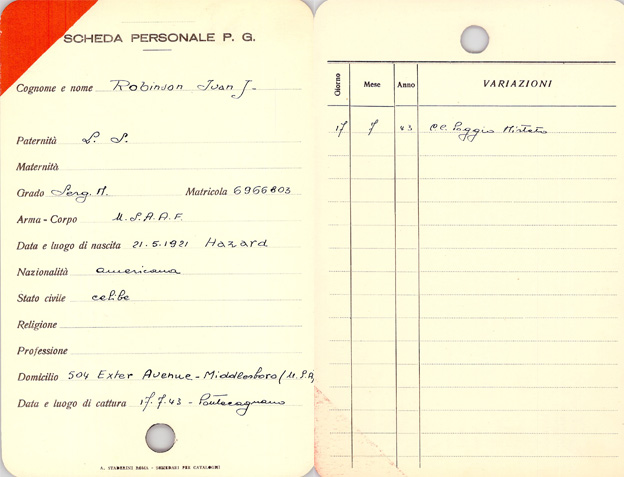 SCHEDA PERSONALE P. G.
Cognome e nome Robinson Ivan J.
Paternità L. S.
Maternità
Grado Serg. M. Matricola 6966803
Arma - Corpo U.S.A.A.F.
Data e luogo di nascita 21.5.1921 Hazard
Nazionalità americana
Stato civile celibe
Religione
Professione
Domicilio 504 Exter Avenue - Middlesboro (U.S.A)
Data e luogo di cattura 17.7.43 - Pontecagnano
A. STADERINI ROMA - SCHEDARI PER CATALOGHI
Giorno Mese Anno VARIAZIONI
17 7 43 CC. Poggio Mirteto